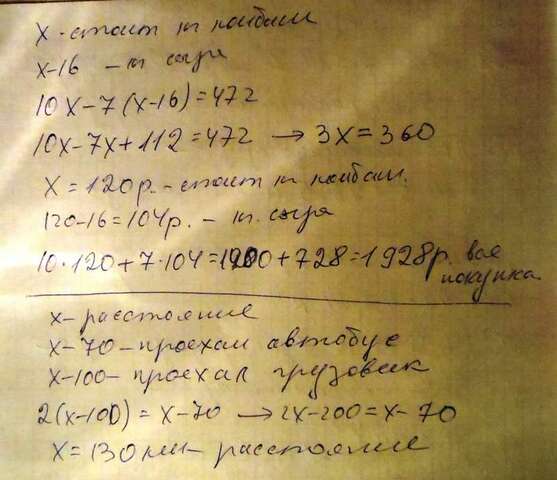 x - стоит кг колбасы
x-16 - кг сыра
10x-7(x-16)=472
10x-7x+112=472 → 3x=360
x=120р. - стоит кг колбасы.
120-16=104р. - кг. сыра
10·120+7·104=1200+728=1928р. вся
покупка
x- расстояние
x-70-проехал автобус
x-100- проехал грузовик
2(x-100)=x-70 → 2x-200=x-70
x=130км- расстояние